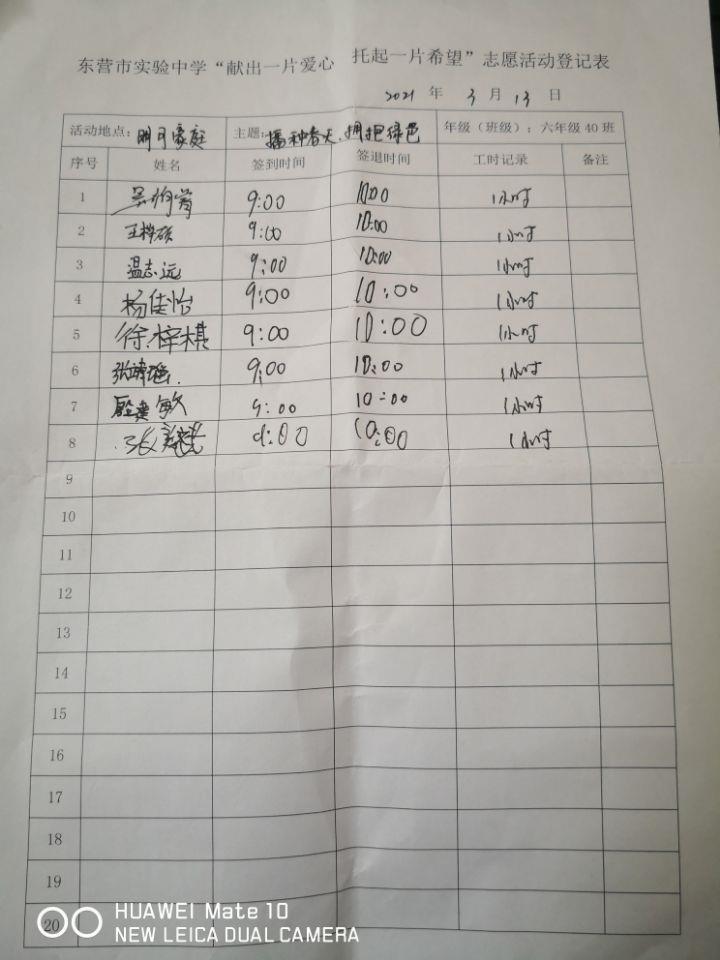 东营市实验中学“献出一片爱心 托起一片希望”志愿活动登记表
2021 年 3 月 13 日
活动地点: 明月家庭 主题: 播种春天、拥抱绿色 年级（班级）: 六年级 40 班
序号 姓名 签到时间 签退时间 工时记录 备注
1 9:00 10:00 1小时
2 王梓硕 9:00 10:00 1小时
3 温志远 9:00 10:00 1小时
4 杨佳怡 9:00 10:00 1小时
5 徐梓棋 9:00 10:00 1小时
6 张靖瑶 9:00 10:00 1小时
7 敏 9:00 10:00 1小时
8 张 9:00 10:00 1小时
9
10
11
12
13
14
15
16
17
18
19
20
HUAWEI Mate 10
NEW LEICA DUAL CAMERA